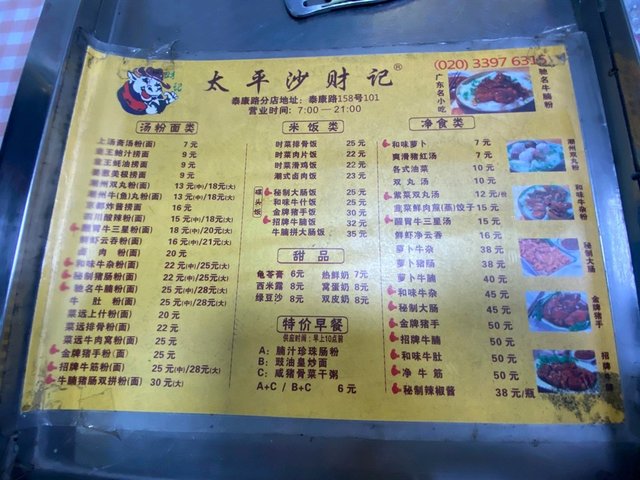 财记
太平沙财记®
泰康路分店地址：泰康路158号101
营业时间：7:00—21:00
(020) 3397 6315
广东名小吃
驰名牛腩粉
汤粉面类
上汤斋汤粉(面) 7 元
鲍汁捞面 9 元
蚝油捞面 9 元
捞面 9 元
潮州双丸粉(面) 13 元(中)/18元(大)
潮州牛(鱼)丸粉(面) 13 元(中)/18元(大)
京都炸酱捞面 16 元
酸辣粉(面) 15 元(中)/18元(大)
醒胃牛三星粉(面) 18 元(中)/20元(大)
鲜虾云吞粉(面) 16 元(中)/21元(大)
卤肉粉(面) 20 元
和味牛杂粉(面) 22 元(中)/25元(大)
秘制猪肠粉(面) 22 元(中)/25元(大)
驰名牛腩粉(面) 25 元(中)/28元(大)
牛肚粉(面) 25 元(中)/28元(大)
菜远上什粉(面) 20 元
菜远排骨粉(面) 22 元
菜远牛肉窝粉(面) 25 元
金牌猪手粉(面) 25 元
招牌牛筋粉(面) 25 元(中)/28元(大)
牛腩猪肠双拼粉(面) 30 元(大)
米饭类
时菜排骨饭 25 元
时菜肉片饭 22 元
时菜滑鸡饭 22 元
潮式卤肉饭 23 元
碟头饭
秘制大肠饭 25 元
和味牛什饭 25 元
金牌猪手饭 30 元
招牌牛腩饭 32 元
牛腩拼大肠饭 35 元
甜品
龟苓膏 6元 热鲜奶 7元
西米露 8元 窝蛋奶 8元
绿豆沙 8元 双皮奶 8元
特价早餐
供应时间：早上10点前
A：腩汁珍珠肠粉
B：豉油皇炒面
C：咸猪骨菜干粥
A+C / B+C 6 元
净食类
和味萝卜 7 元
爽滑猪红汤 7 元
各式油菜 10 元
双丸汤 10 元
紫菜双丸汤 12 元/份
韭菜鲜肉煎(蒸)饺子 15 元
醒胃牛三星汤 15 元
鲜虾净云吞 16 元
萝卜牛杂 38 元
萝卜猪肠 38 元
萝卜牛腩 40 元
和味牛杂 45 元
金牌猪手 45 元
招牌牛腩 50 元
和味牛肚 50 元
净牛筋 50 元
秘制辣椒酱 38 元/瓶
潮州双丸粉
和味牛杂粉
秘制大肠
金牌猪手
招牌